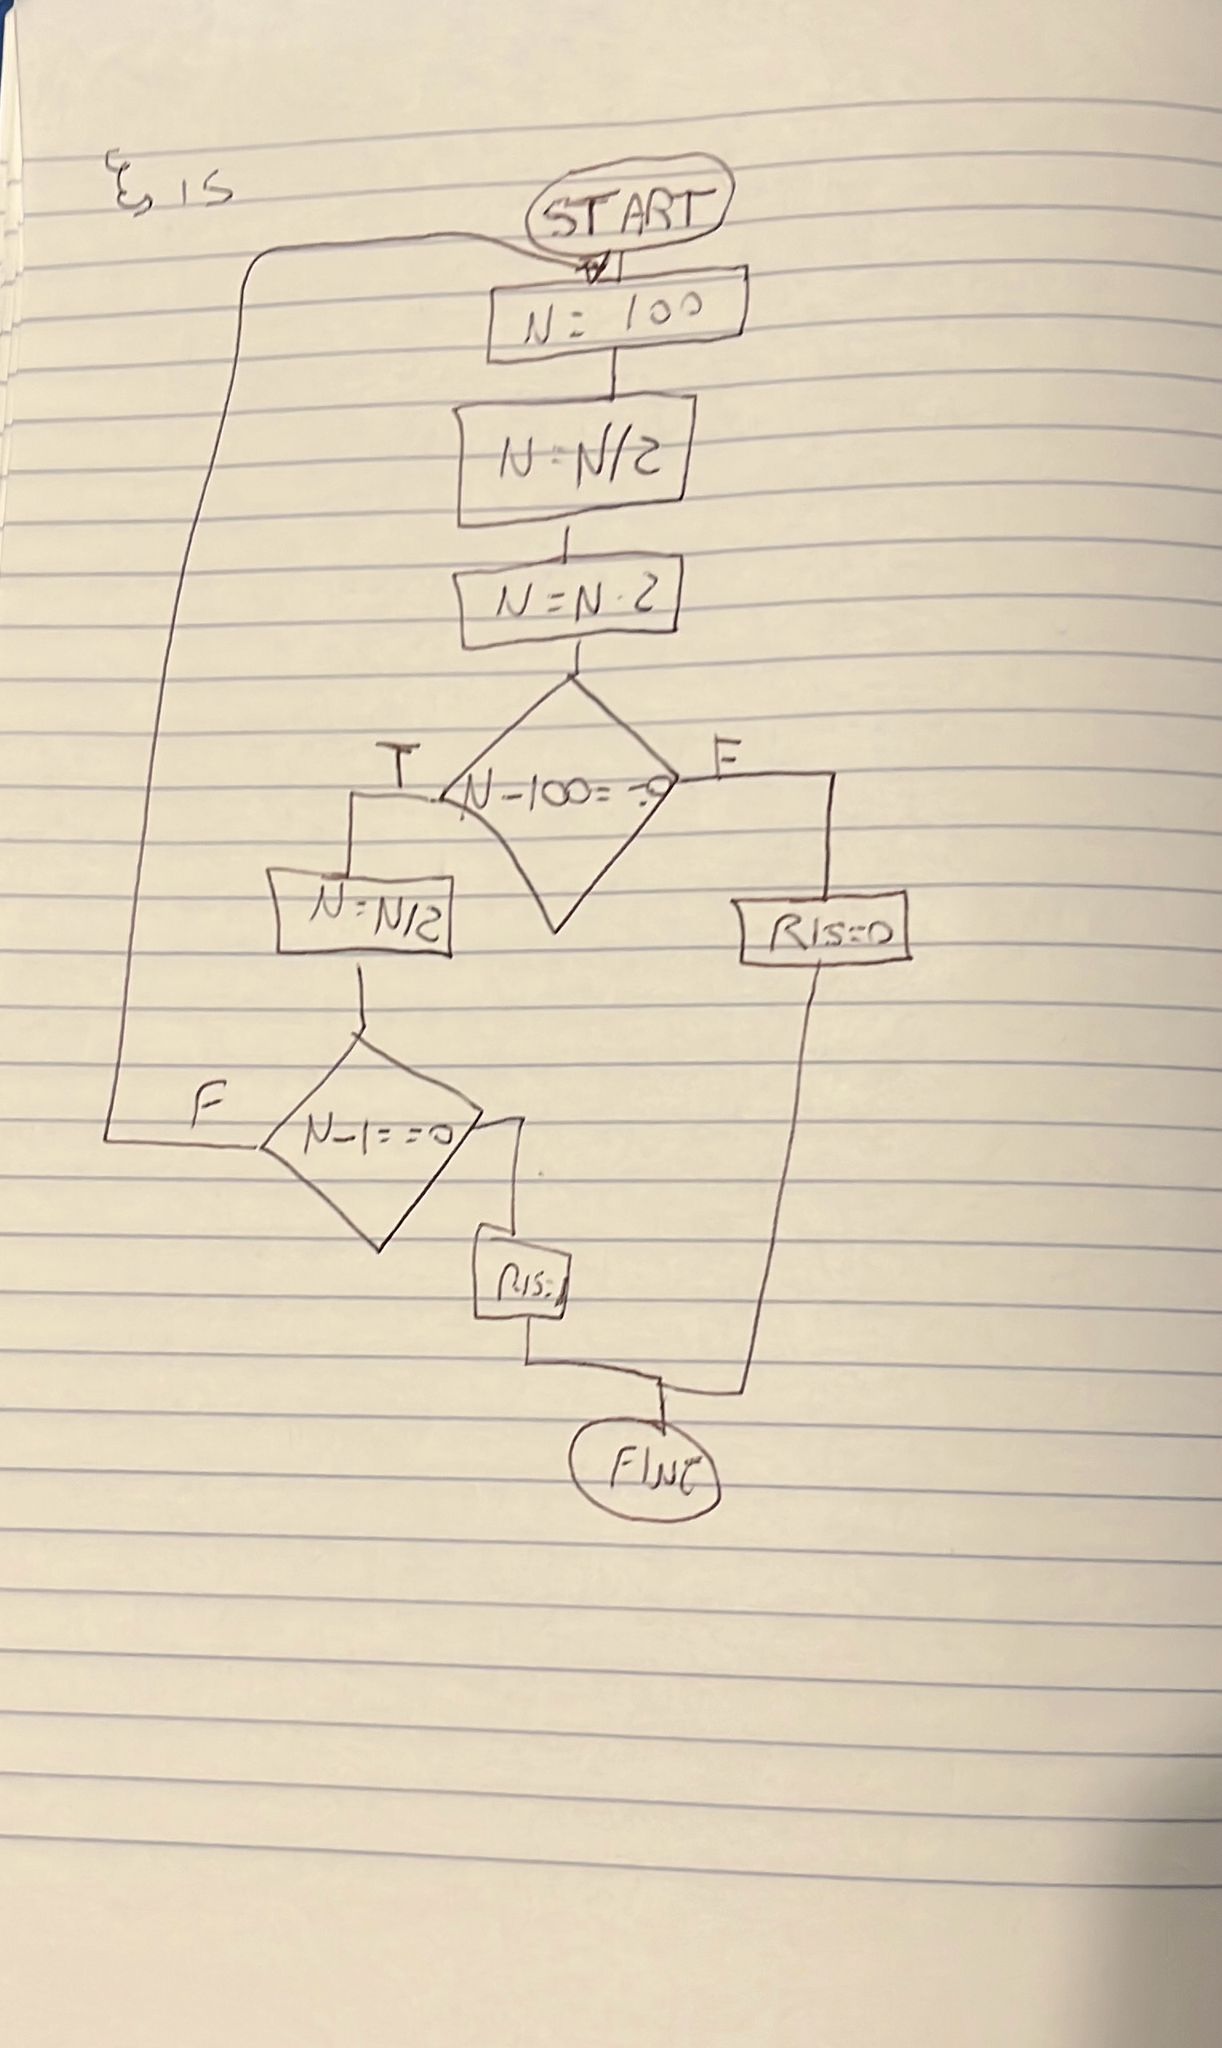 Es 15
START
N = 100
N = N/2
N = N · 2
T
F
N - 100 == 0
N = N/2
RIS = 0
F
N - 1 == 0
RIS = 1
FINE